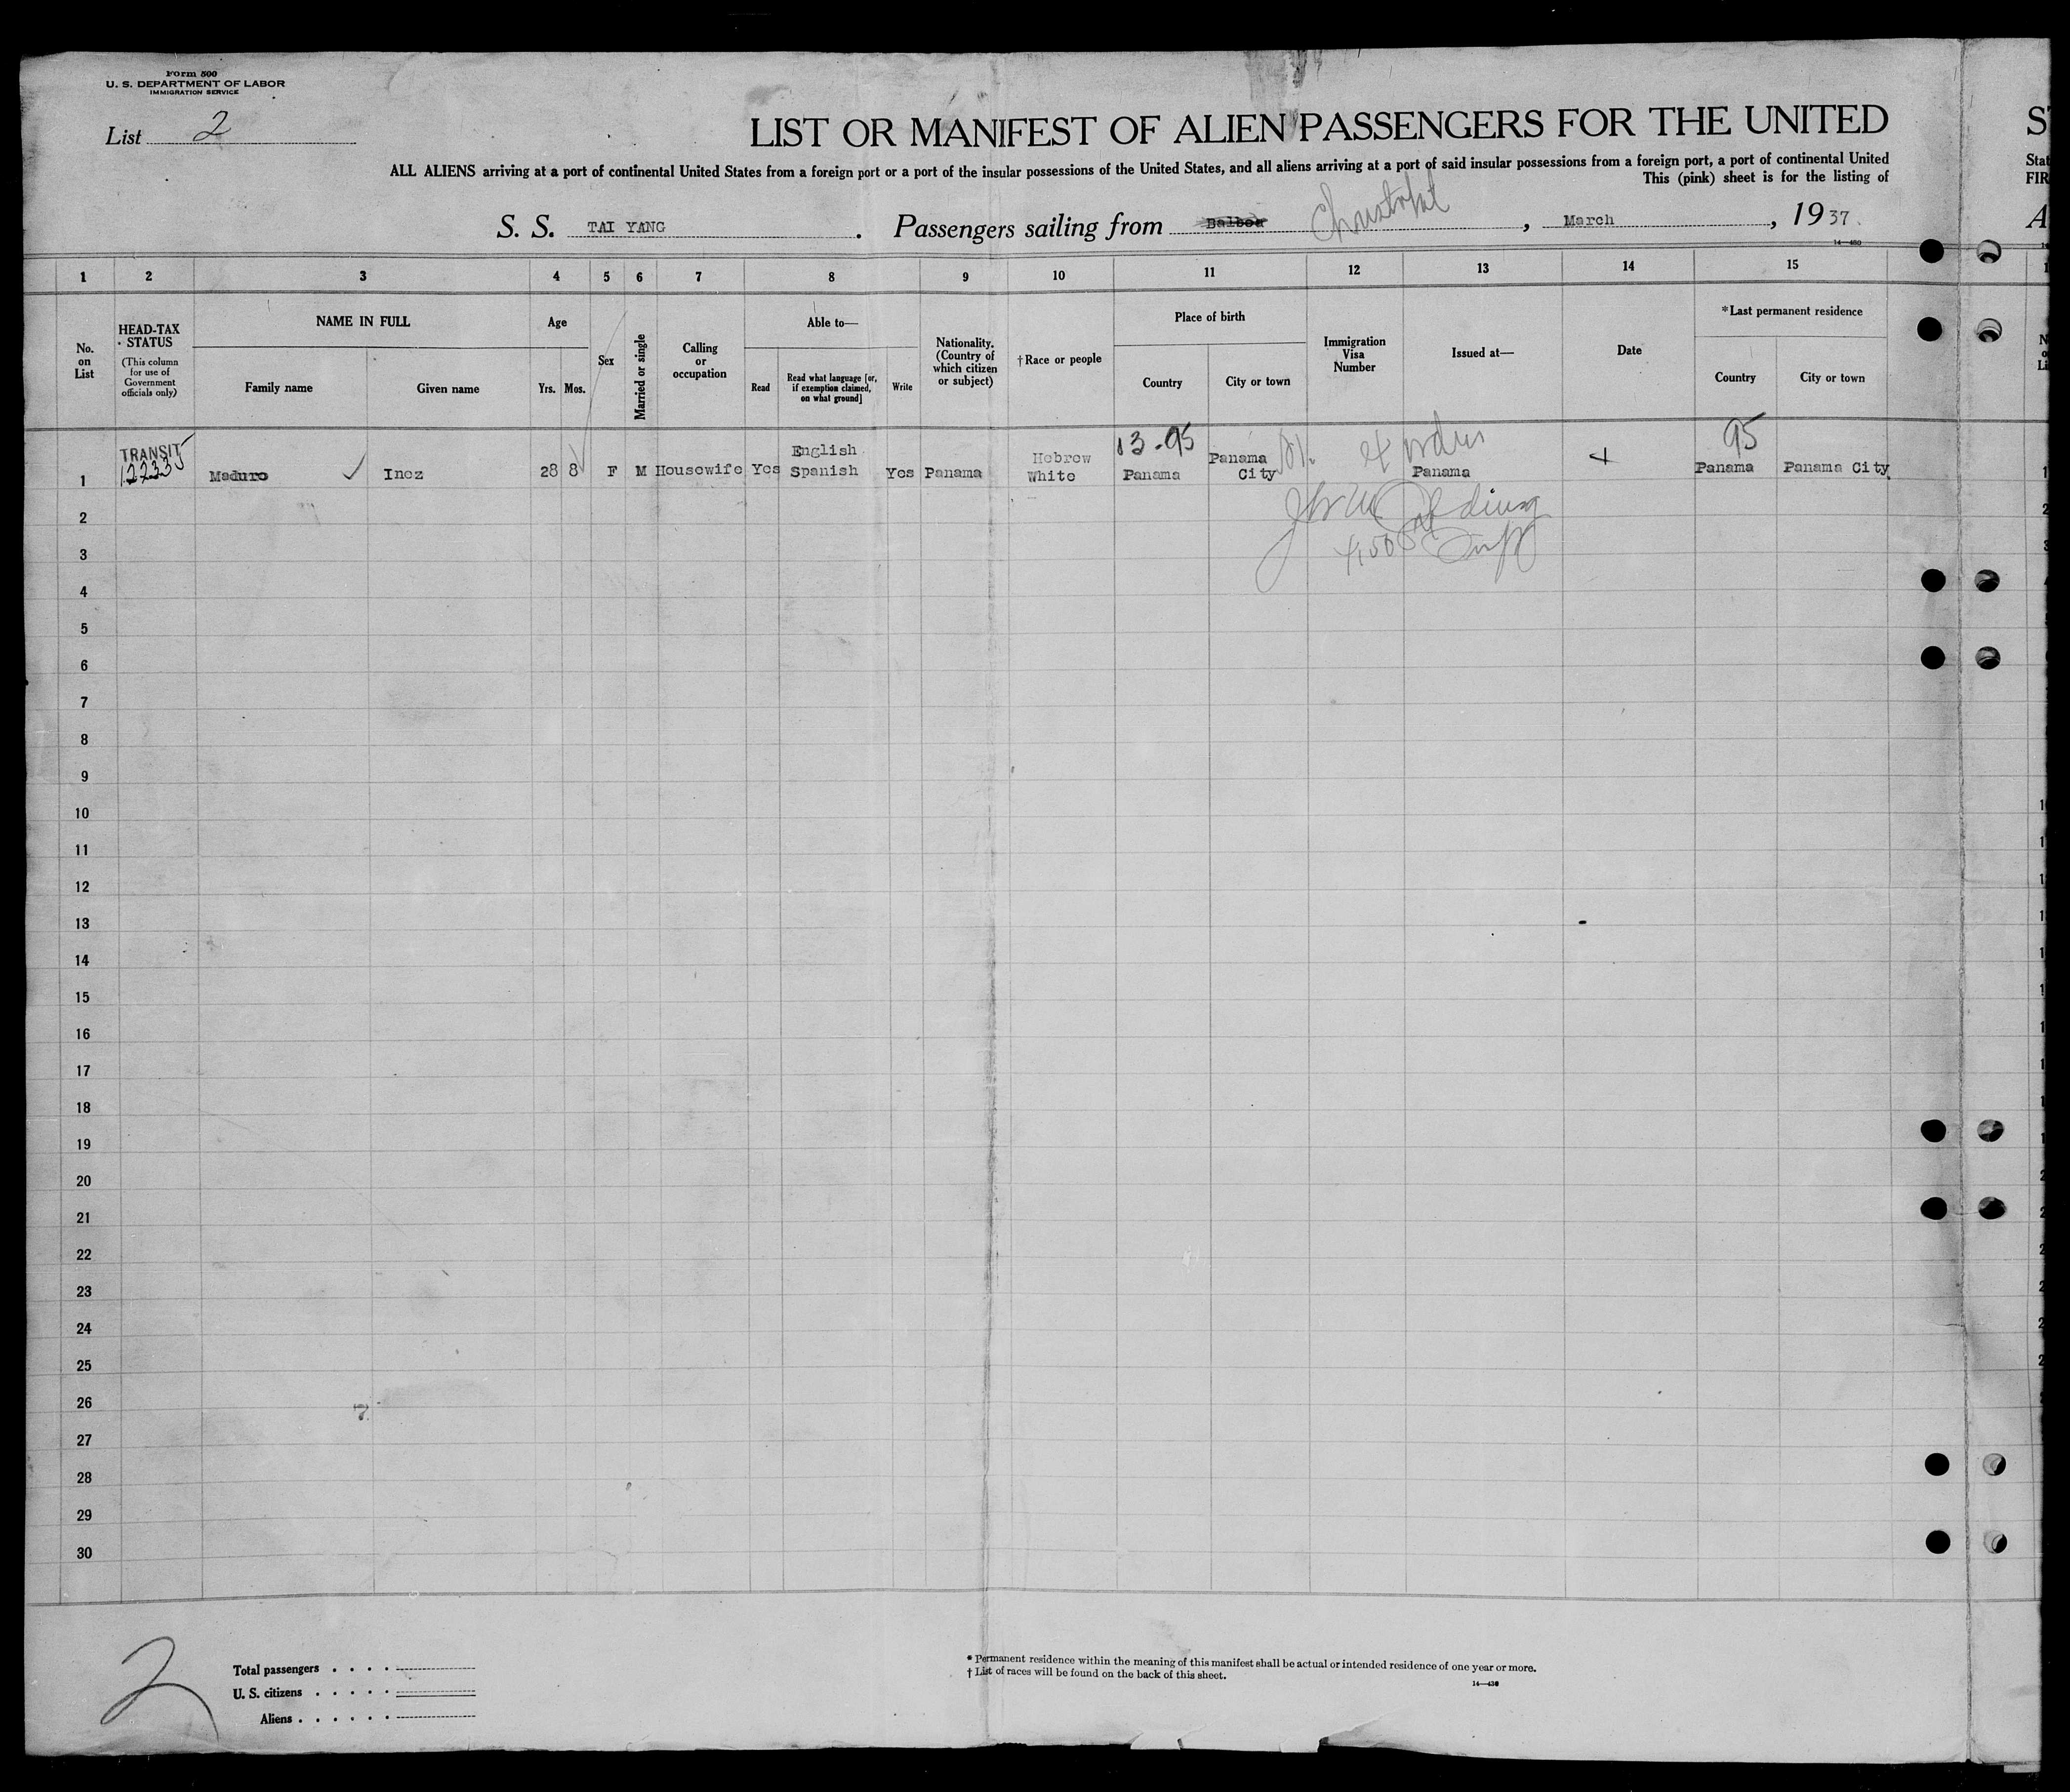 Form 500
U. S. DEPARTMENT OF LABOR
IMMIGRATION SERVICE
List 2
LIST OR MANIFEST OF ALIEN PASSENGERS FOR THE UNITED
ALL ALIENS arriving at a port of continental United States from a foreign port or a port of the insular possessions of the United States, and all aliens arriving at a port of said insular possessions from a foreign port, a port of continental United
This (pink) sheet is for the listing of
S. S. TAI YANG . Passengers sailing from Balboa Christobal , March , 1937
14—480
1 2 3 4 5 6 7 8 9 10 11 12 13 14 15
No. on List
HEAD-TAX STATUS
(This column for use of Government officials only)
NAME IN FULL
Family name Given name
Age
Yrs. Mos.
Sex
Married or single
Calling or occupation
Able to—
Read
Read what language [or, if exemption claimed, on what ground]
Write
Nationality. (Country of which citizen or subject)
†Race or people
Place of birth
Country City or town
Immigration Visa Number
Issued at—
Date
*Last permanent residence
Country City or town
TRANSIT English Hebrew 13-95 Panama 95
1 Maduro Inez 28 8 F M Housewife Yes Spanish Yes Panama White Panama City Panama Panama Panama City
2
3
4
5
6
7
8
9
10
11
12
13
14
15
16
17
18
19
20
21
22
23
24
25
26
27
28
29
30
2
Total passengers
U. S. citizens
Aliens
* Permanent residence within the meaning of this manifest shall be actual or intended residence of one year or more.
† List of races will be found on the back of this sheet.
14—430